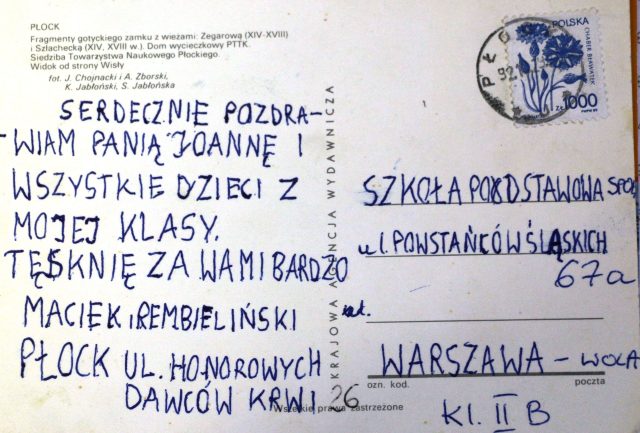 PŁOCK
Fragmenty gotyckiego zamku z wieżami: Zegarową (XIV-XVIII)
i Szlachecką (XIV, XVIII w.). Dom wycieczkowy PTTK.
Siedziba Towarzystwa Naukowego Płockiego.
Widok od strony Wisły
fot. J. Chojnacki i A. Zborski,
K. Jabłoński, S. Jabłońska
SERDECZNIE POZDRA-
-WIAM PANIĄ JOANNĘ I
WSZYSTKIE DZIECI Z
MOJEJ KLASY.
TĘSKNIĘ ZA WAMI BARDZO
MACIEK REMBIELIŃSKI
PŁOCK UL. HONOROWYCH
DAWCÓW KRWI 26
Wszelkie prawa zastrzeżone
KRAJOWA AGENCJA WYDAWNICZA
POLSKA
CHABER BŁAWATEK
ZŁ 1000
PŁO
92
SZKOŁA PODSTAWOWA SPOŁ
ul. POWSTAŃCÓW ŚLĄSKICH
67a
WARSZAWA – WOLA
ozn. kod. poczta
Kl. II B